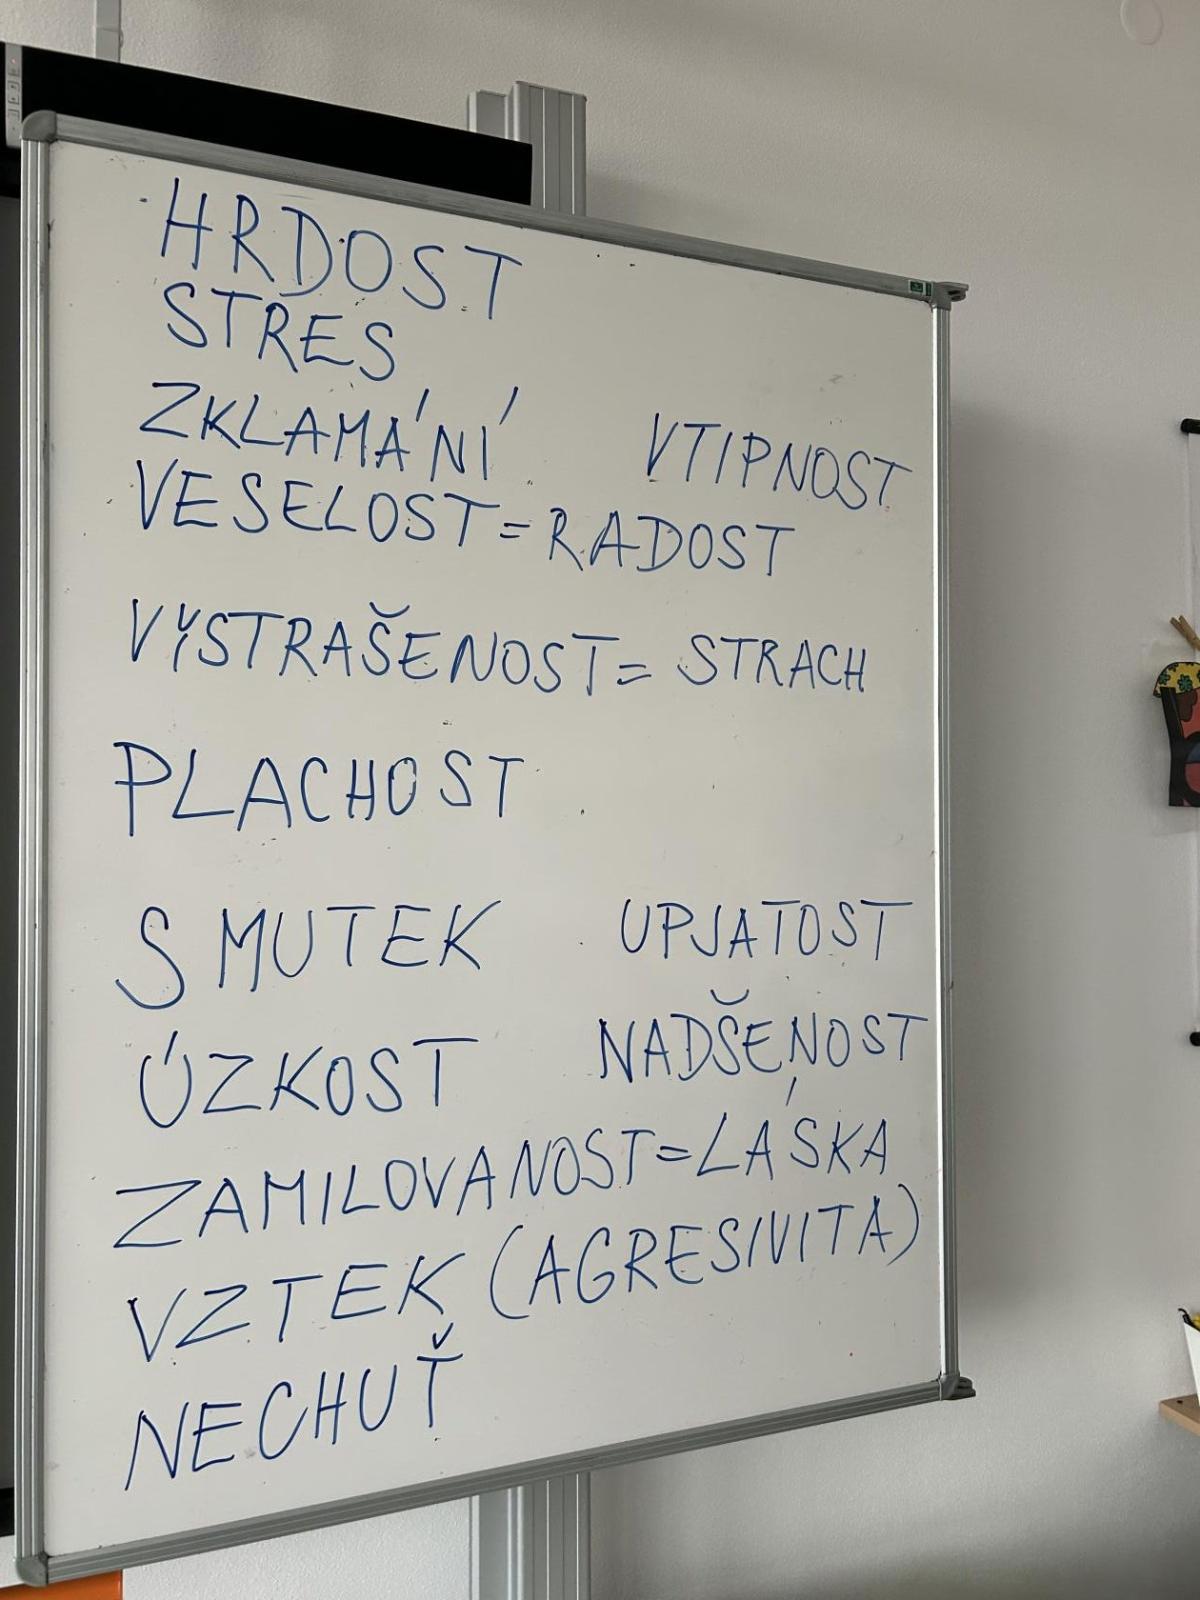 HRDOST
STRES
ZKLAMÁNÍ VTIPNOST
VESELOST = RADOST
VYSTRAŠENOST = STRACH
PLACHOST
SMUTEK UPJATOST
ÚZKOST NADŠENOST
ZAMILOVANOST = LÁSKA
VZTEK (AGRESIVITA)
NECHUŤ